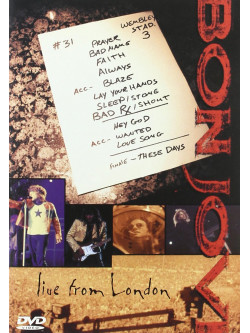 #31
WEMBLEY
STAD.
3
PRAYER
BAD NAME
FAITH
ALWAYS
ACC- BLAZE
LAY YOUR HANDS
SLEEP/STONE
BAD RX/SHOUT
HEY GOD
ACC- WANTED
LOVE SONG
FINALE - THESE DAYS
BON JOVI
live from London
DVD
VIDEO